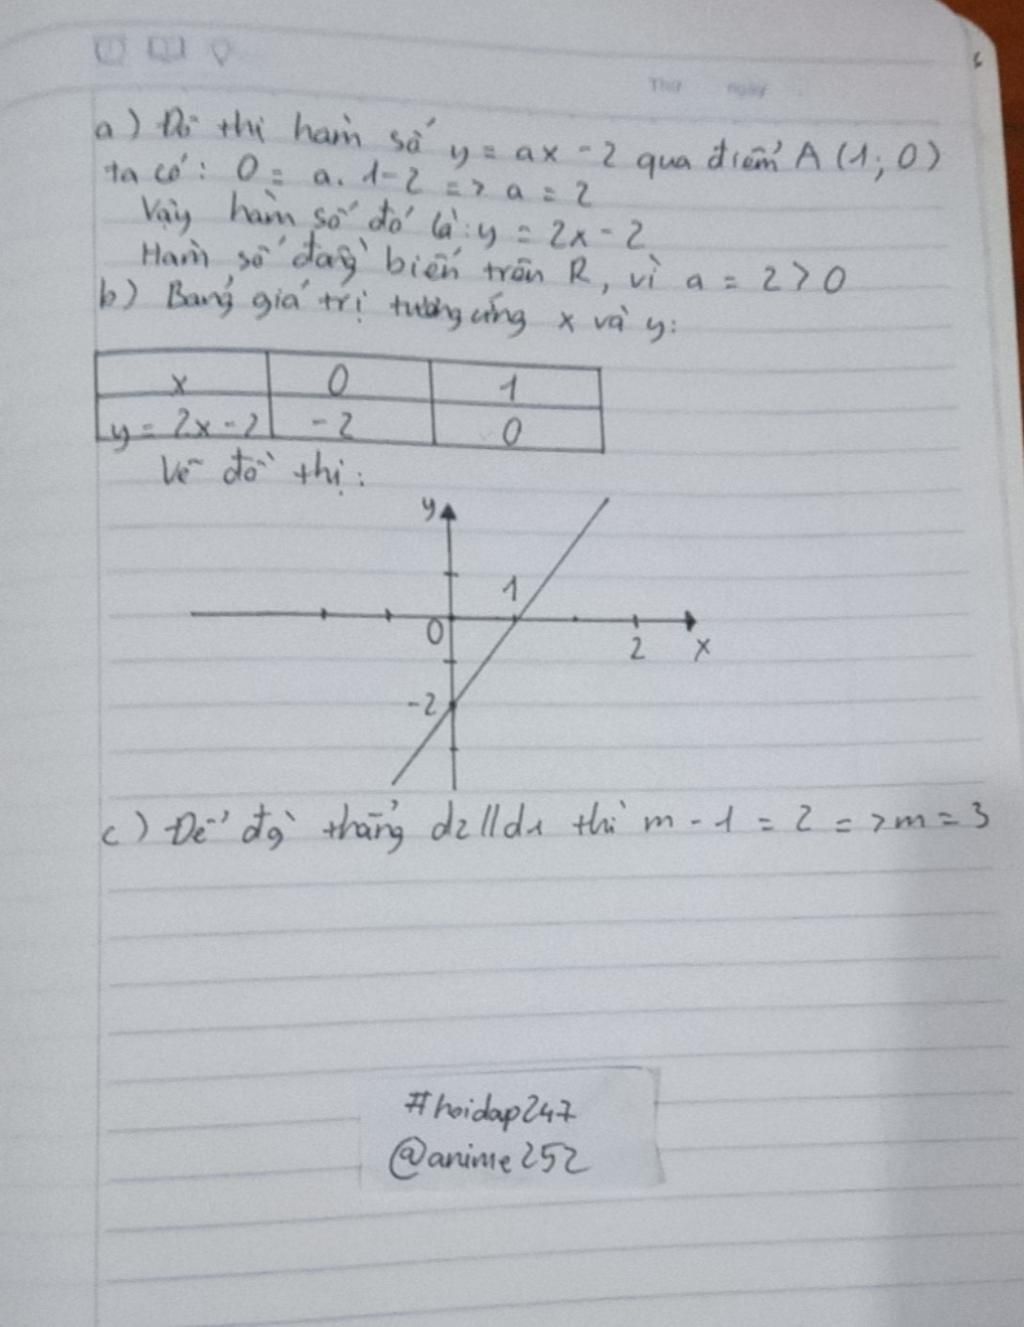 Thứ ngày
a) Đồ thị hàm số y = ax - 2 qua điểm A (1; 0)
ta có: 0 = a. 1-2 => a = 2
Vậy hàm số đó là: y = 2x - 2
Hàm số đồng biến trên R, vì a = 2 > 0
b) Bảng giá trị tương ứng x và y:
x 0 1
y = 2x - 2 -2 0
Vẽ đồ thị:
y
1
0
2 x
-2
c) Để đg thẳng d2 // d1 thì m - 1 = 2 => m = 3
#hoidap247
@anime252